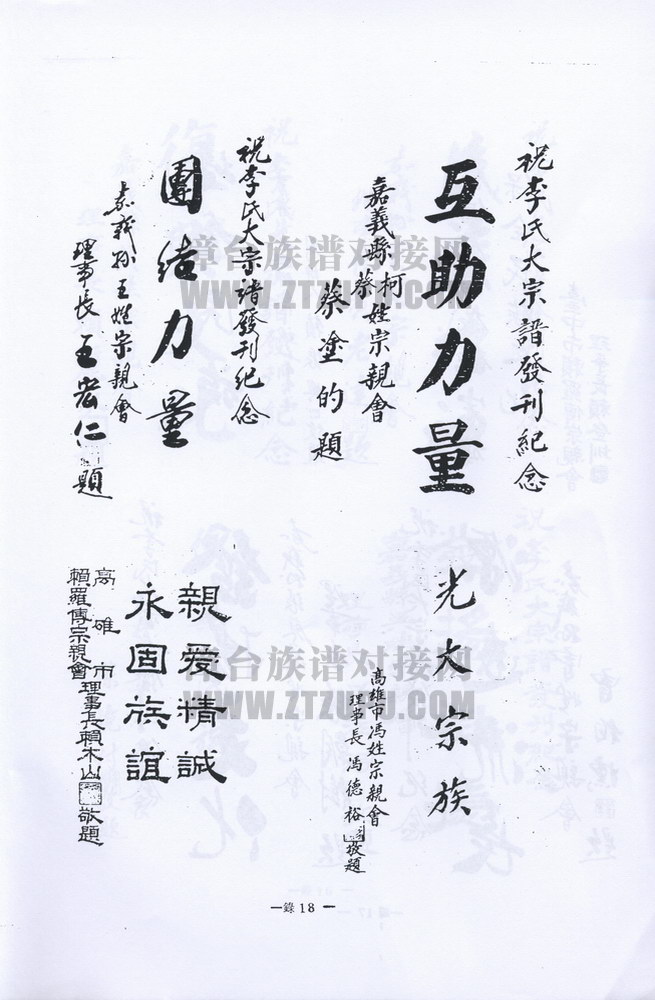 祝李氏大宗譜發刊紀念
互助力量
嘉義縣柯蔡姓宗親會
蔡塗的題
祝李氏大宗譜發刊紀念
團結力量
嘉義縣王姓宗親會
理事長王宏仁題
光大宗族
高雄市馮姓宗親會
理事長馮德裕敬題
親愛精誠
永固族誼
高雄市
賴羅傅宗親會理事長賴木山敬題
漳台族谱对接网
WWW.ZTZUPU.COM
漳台族谱对接网
WWW.ZTZUPU.COM
—錄18—